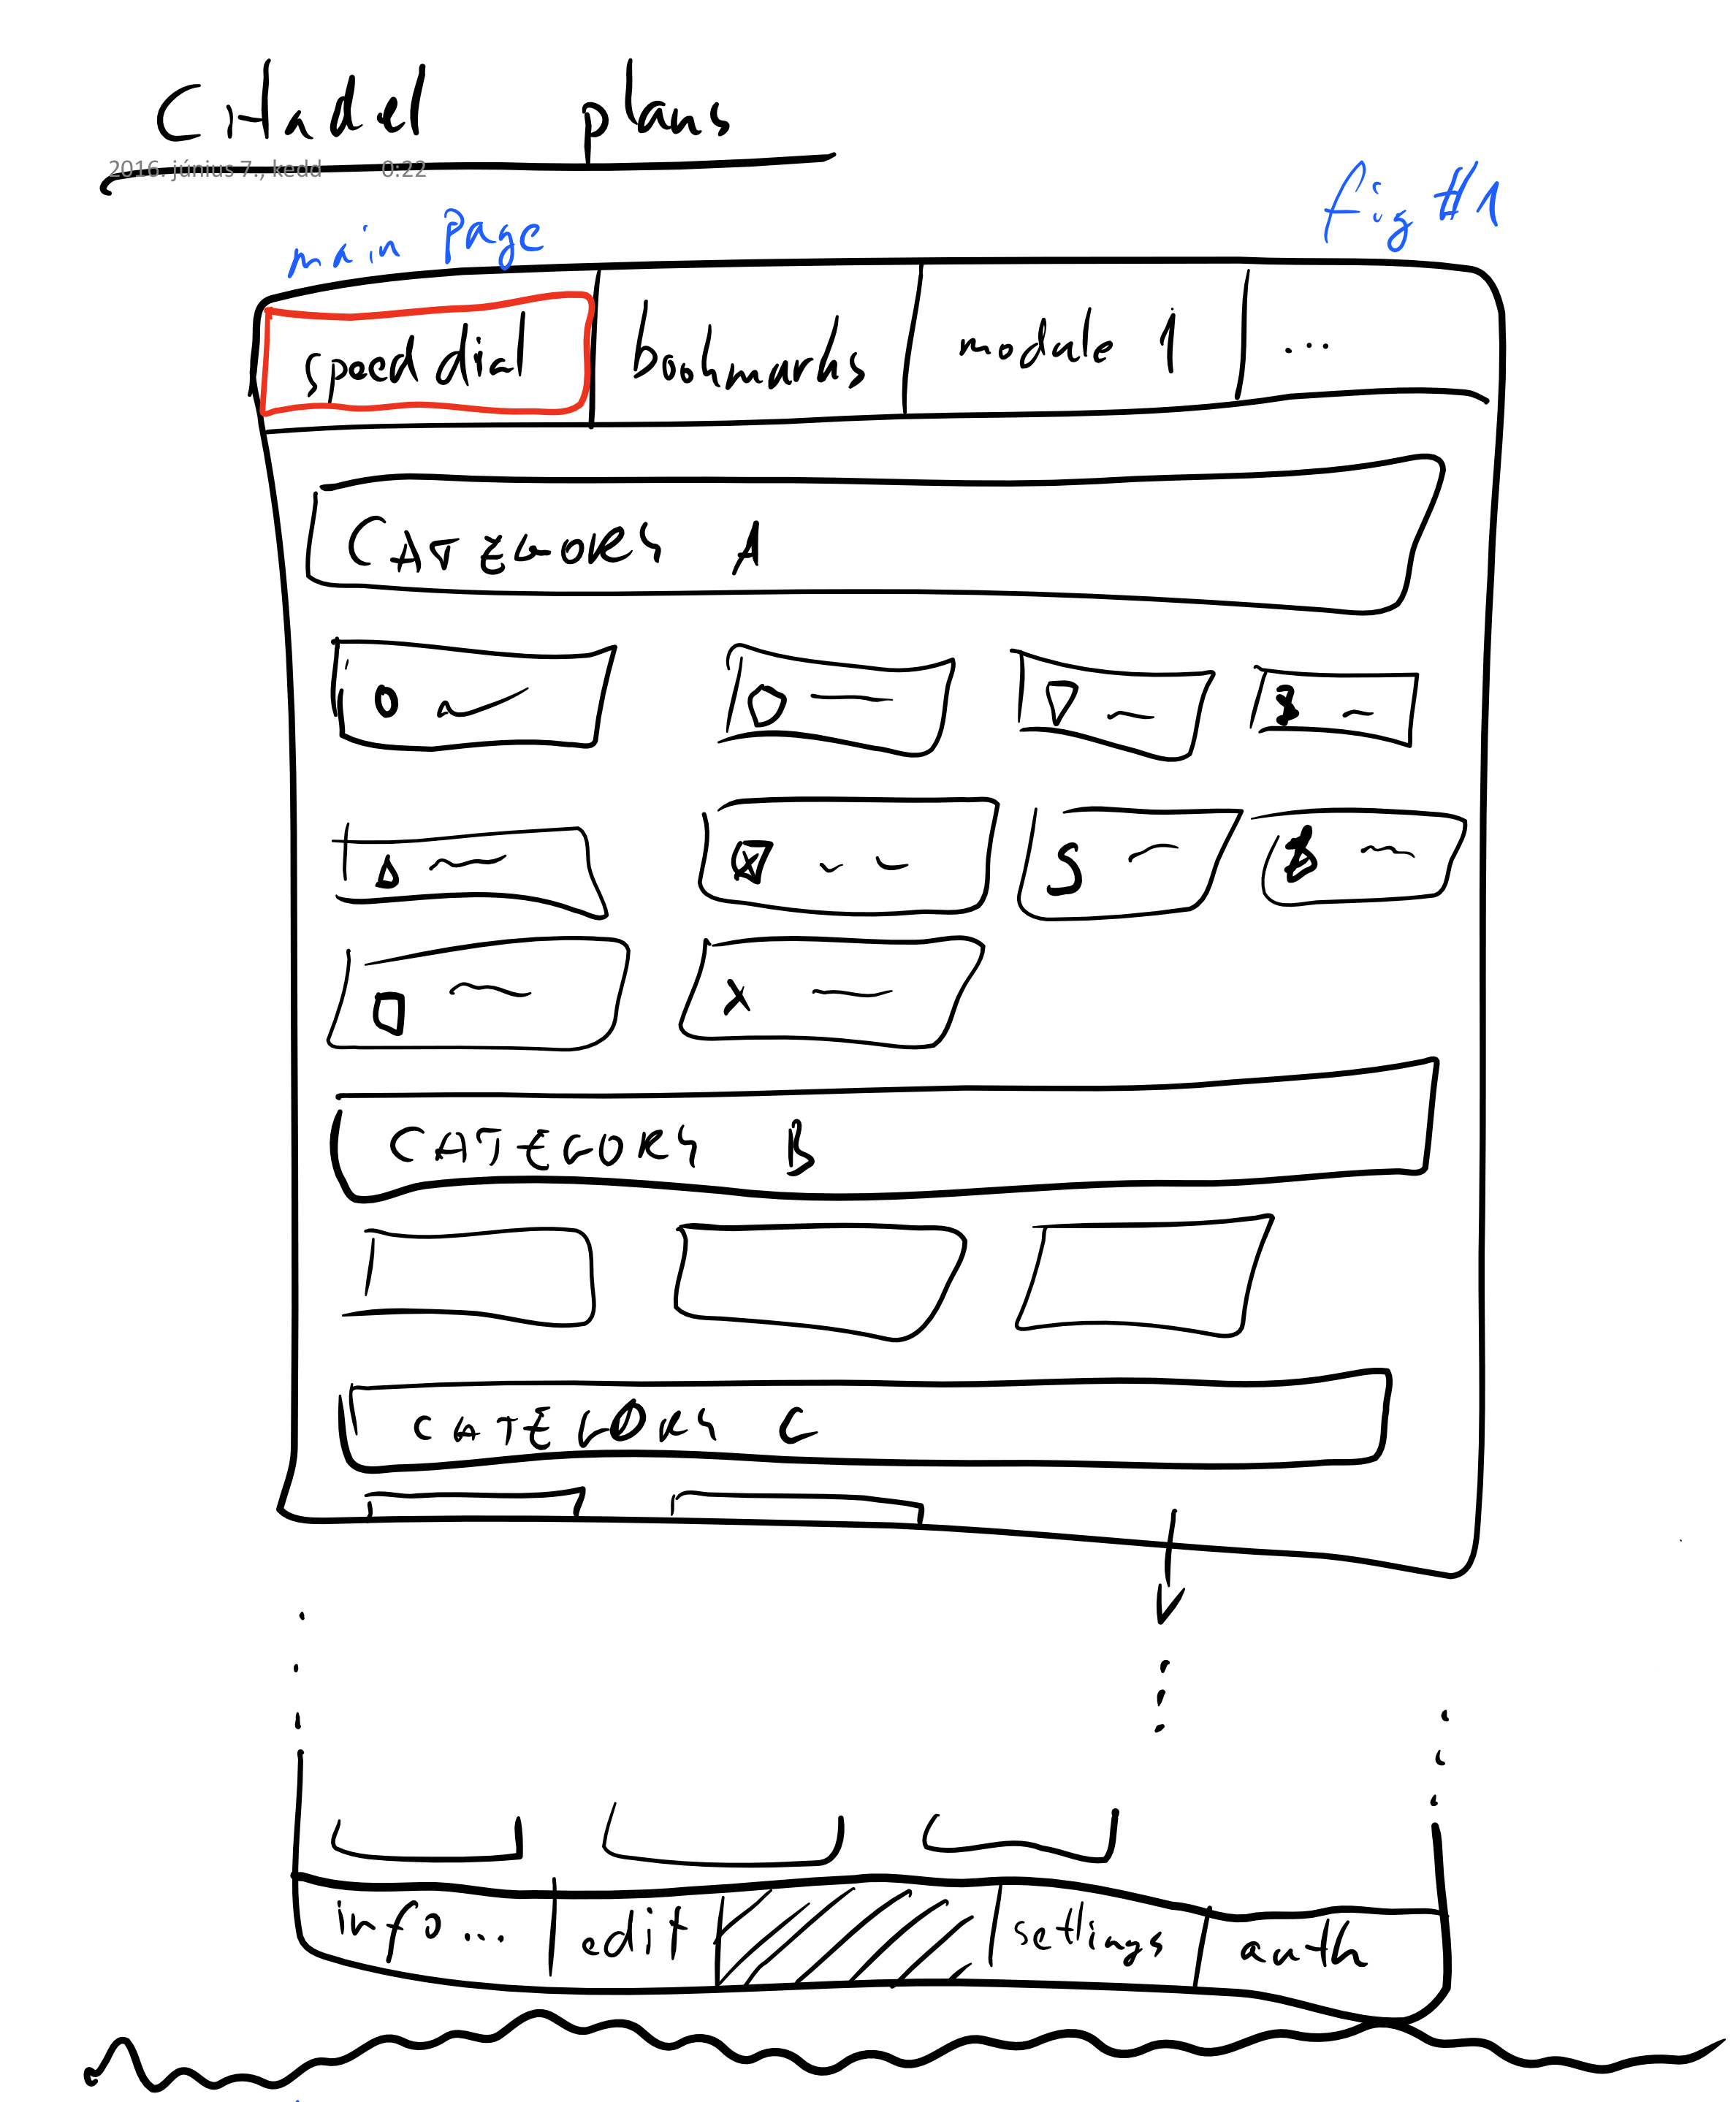 Citadel plans
2016. június 7., kedd 0:22
main Page
fig #1
speed dial
bookmarks
module 1
...
CATEGORY A
CATEGORY B
CATEGORY C
info...
edit
settings
auth